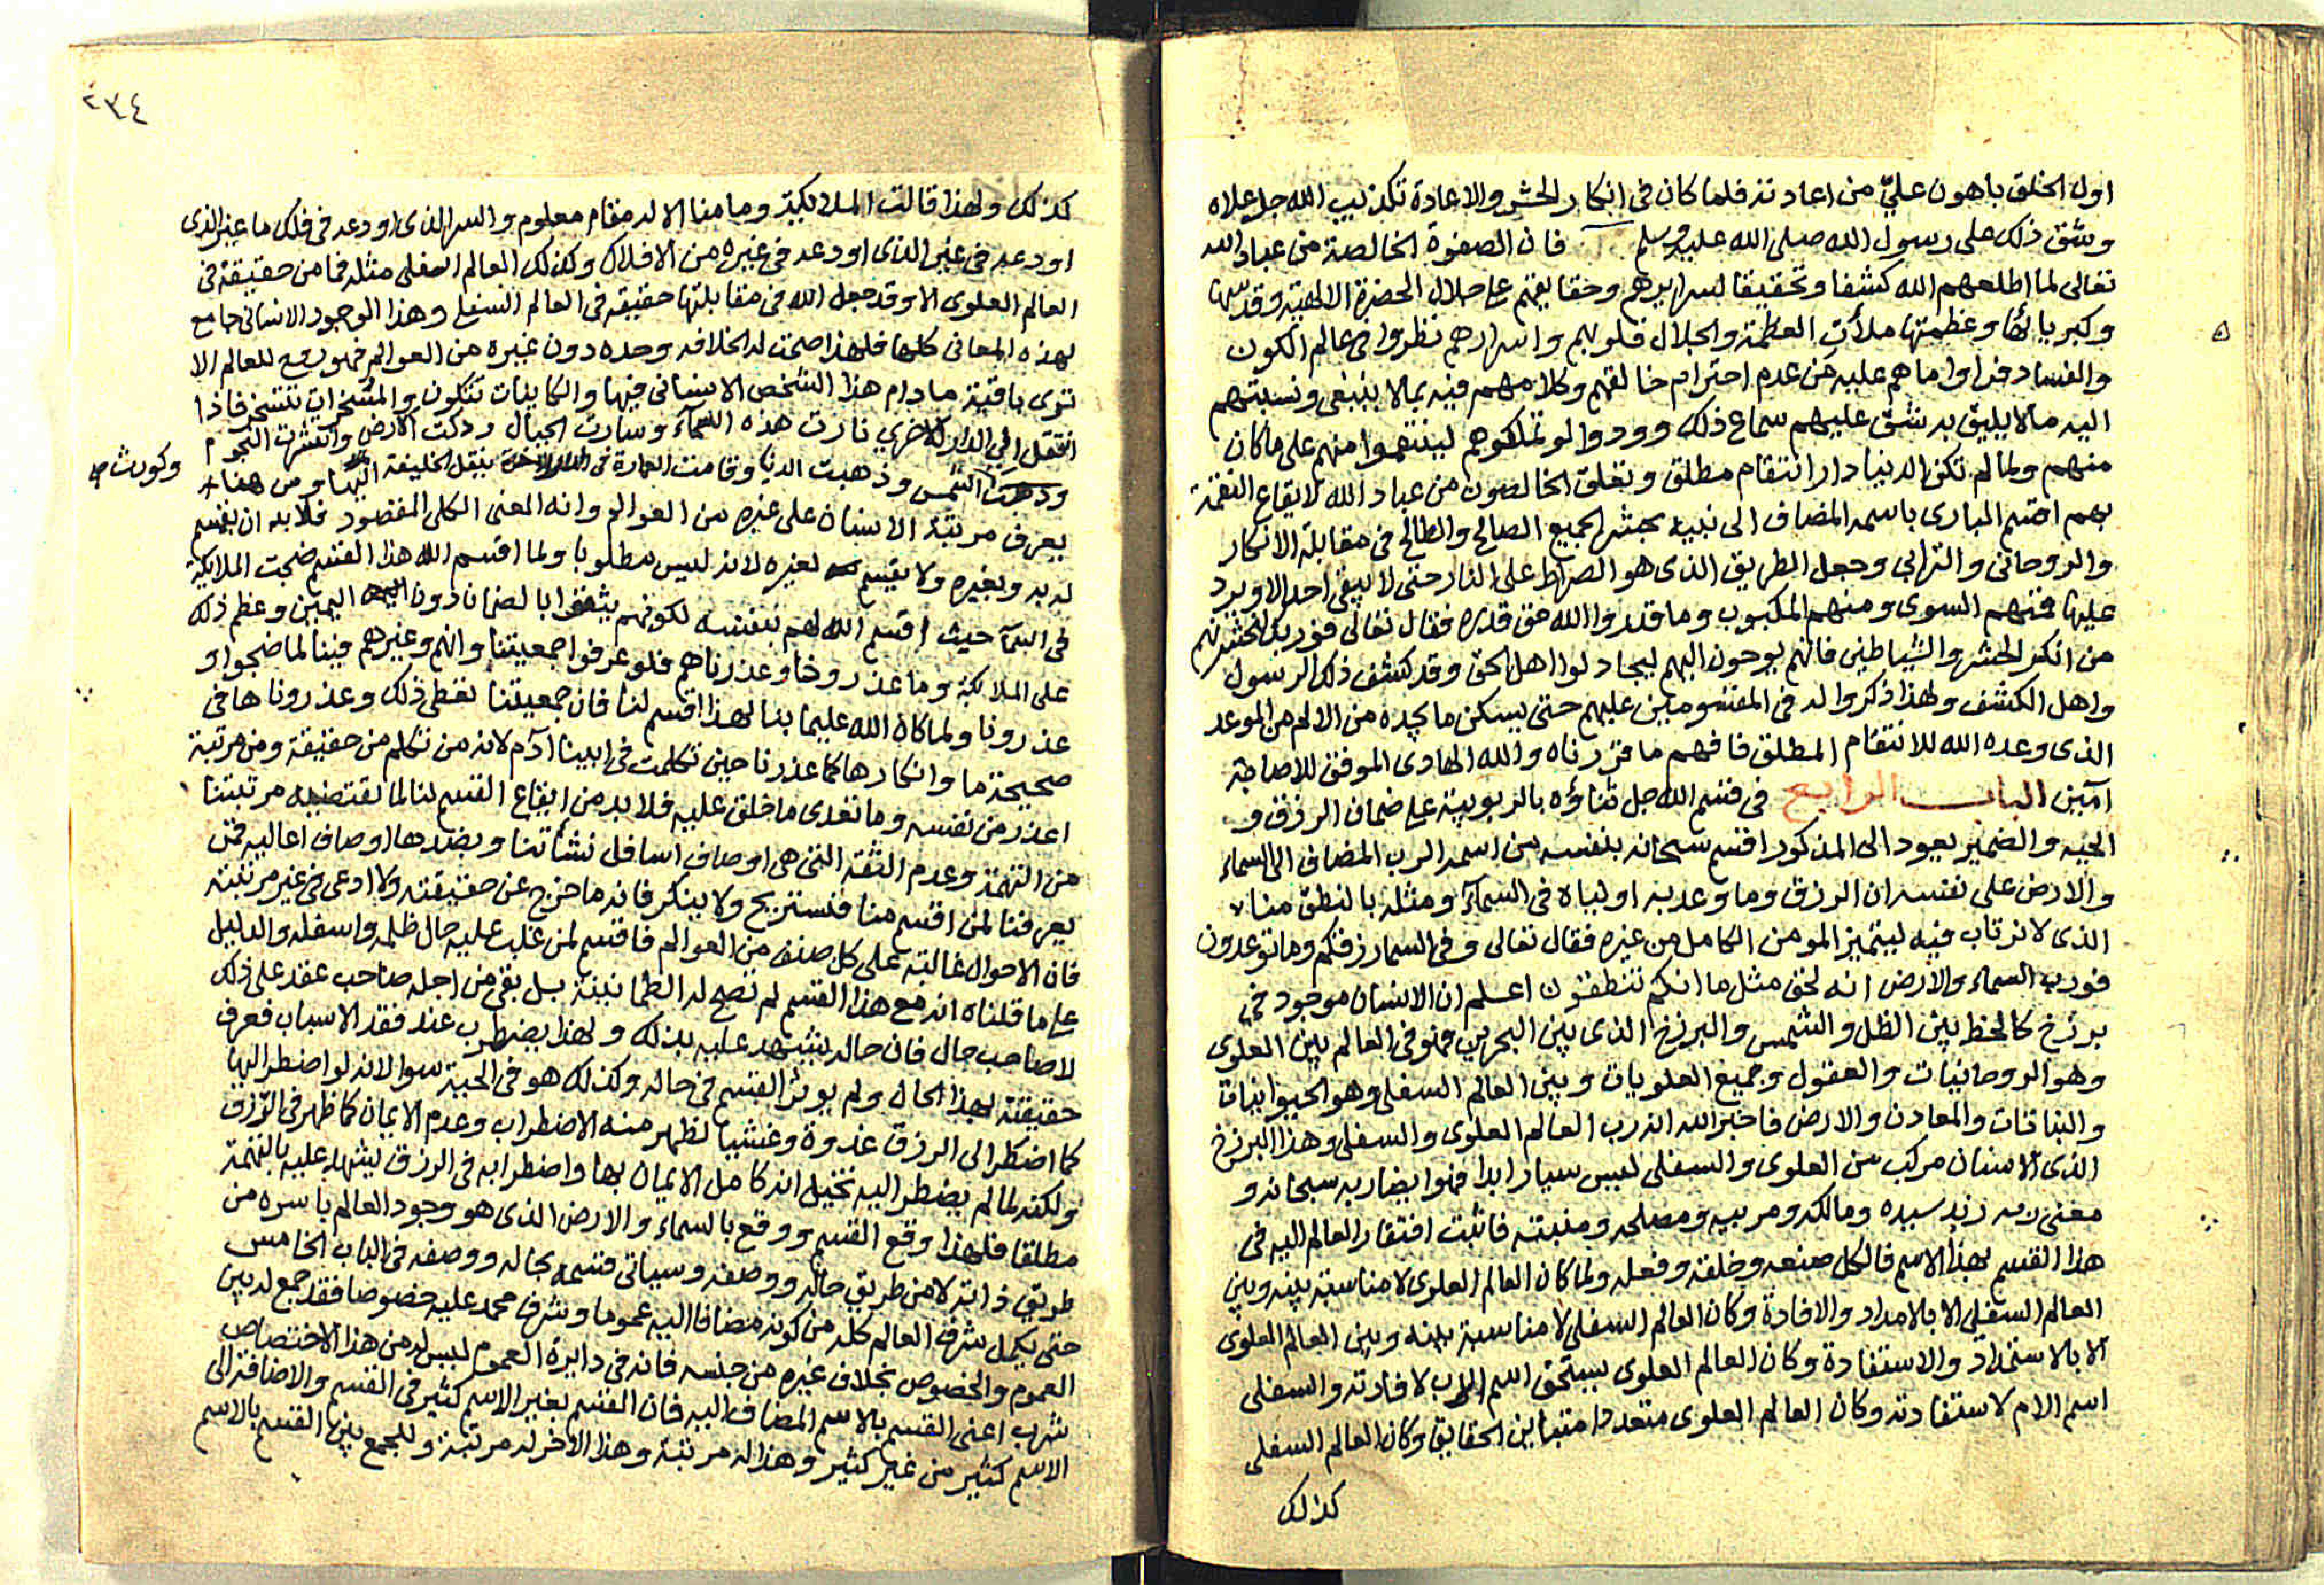 اول الخلق باهون عليّ من اعادته فلما كان فى انكار الحشر والاعادة تكذيب الله جل علاه
وشق ذلك على رسول الله صلى الله عليه وسلم فان الصفوة الخالصة من عباد الله
تعالى لما اطلعهم الله كشفا وتحقيقا لسرايرهم وحقايقهم على جلال الحضرة الالهية وقدسها
وكبريائها وعظمتها ملأت العظمة والجلال قلوبهم واسرارهم نظروا فى عالم الكون
والفساد فراوا ما هم عليه من عدم احترام خالقهم وكلامهم فيه بما لا ينبغى ونسبتهم
اليه ما لا يليق به شق عليهم سماع ذلك وودوا لو تملكوهم لينتقموا منهم على ما كان
منهم ولما لم تكن الدنيا دار انتقام مطلق وتعلق الخالصون من عباد الله لايقاع النقمة
بهم اقسم البارى باسمه المضاف الى نبيه بحشر الجميع الصالح والطالح فى مقابلة الانكار
والروحانى والترابى وجعل الطريق الذى هو الصراط على النار حتى لا يبقى احد الا ويرد
عليها فمنهم السوى ومنهم المكبوب وما قدروا الله حق قدره فقال تعالى فوربك لنحشرنهم
من انكر الحشر والشياطين فانهم يوحون اليهم ليجادلوا اهل الحق وقد كشف ذلك الرسول
واهل الكشف ولهذا ذكروا له فى المقسومين عليهم حتى يسكن ما يجده من الالم من الموعد
الذى وعده الله للانتقام المطلق فافهم ما قررناه والله الهادى الموفق للاصابة
آمين الباب الرابع فى قسم الله جل ثناؤه بالربوبية على ضمان الرزق و
الجنه والضمير يعود الى المذكور اقسم سبحانه بنفسه من اسمه الرب المضاف الى السماء
والارض على نفسه ان الرزق وما وعد به اولياه فى السماء ومثله بالنطق منا
الذى لا نرتاب فيه ليتميز المومن الكامل من غيره فقال تعالى وفى السما رزقكم وما توعدون
فورب السماء والارض انه لحق مثل ما انكم تنطقون اعلم ان الانسان موجود فى
برزخ كالخط بين الظل والشمس والبرزخ الذى بين البحرين فهو فى العالم بين العلوى
وهو الروحانيات والعقول وجميع العلويات وبين العالم السفلى وهو الحيوانيات
والنباتات والمعادن والارض فاخبر الله انه رب العالم العلوى والسفلى وهذا البرزخ
الذى الانسان مركب من العلوى والسفلى ليس سيارا ابدا فهو ايضا ربه سبحانه و
معنى رب زيد سيده ومالكه ومربيه ومصلحه ومثبته فاثبت افتقار العالم اليه فى
هذا القسم بهذا الاسم فالكل صنعه وخلقه وفعله ولما كان العالم العلوى لا مناسبة بينه وبين
العالم السفلى الا بالامداد والافادة وكان العالم السفلى لا مناسبة بينه وبين العالم العلوى
الا بالاستمداد والاستفادة وكان العالم العلوى يستحق اسم الاب لافادته والسفلى
اسم الام لاستفادته وكان العالم العلوى متعددا متباين الحقايق وكان العالم السفلى
كذلك
٢٣٤
كذلك ولهذا قالت الملايكة وما منا الا له مقام معلوم والسر الذى اودعه فى فلك ما غير الذى
اودعه فى غير الذى اودعه فى غيره من الافلاك وكذلك العالم السفلى مثله فما من حقيقة فى
العالم العلوى الا وقد جعل الله فى مقابلتها حقيقة فى العالم السفلى وهذا الوجود الانسانى جامع
لهذه المعانى كلها فلهذا صحت له الخلافه وحده دون غيره من العوالم فهو روح للعالم الا
ترى باقية ما دام هذا الشخص الانسانى فيها والكاينات تتكون والمسخرات تتسخر فاذا
انتقل الى الدار الاخرى نارت هذه السماء وسارت الجبال ودكت الارض وانتثرت النجوم
وكورت
الشمس وذهبت الدنيا وقامت العمارة فى الدار الاخرة بنقل الخليفة اليها ومن هنا
يعرف مرتبة الانسان على غيره من العوالم وانه المعنى الكلى المقصود فلا بد ان يقسم
له به وبغيره ولا يقسم لغيره لانه ليس مطلوبا ولما اقسم الله هذا القسم ضجت الملايكة
فى السماء حيث اقسم الله لهم بنفسه لكونهم يثقوا بالضمان دون اليمين وعظم ذلك
على الملايكة وما عذرونا وعذرناهم فلو عرفوا جمعيتنا وانهم وغيرهم فينا لما ضجوا و
عذرونا ولما كان الله عليما بنا لهذا اقسم لنا فان جمعيتنا تعطى ذلك وعذرونا ها فى
صحيحة ما وانكارها كما عذرنا حين تكلمت فى ابينا آدم لانه من تكلم من حقيقة ومن مرتبة
اعذر من نفسه وما تعدى ما خلق عليه فلا بد من ايقاع القسم لنا لما تقتضيه مرتبتنا
من التهمة وعدم الثقة التى هى اوصاف اسافل نشأتنا وبضدها اوصاف اعاليه فمن
يعرفنا لمن اقسم منا فنستريح ولا ينكر فانه ما خرج عن حقيقته ولا ادعى فى غير مرتبته
فان الاحوال غالبة على كل صنف من العوالم فاقسم لمن غلب عليه حال ظلمه واسفله والدليل
على ما قلناه انه مع هذا القسم لم تصح له الطمانينة بل بقى من اجله صاحب عقد على ذلك
لا صاحب حال فان حاله يشهد عليه بذلك ولهذا يضطرب عند فقد الاسباب فعرف
حقيقته بهذا الحال ولم يوثر القسم فى حاله وكذلك هو فى الجنة سوا لانه لو اضطر اليها
كما اضطر الى الرزق غدوة وعشيا لظهر منه الاضطراب وعدم الايمان كما ظهر فى الرزق
ولكنه لما لم يضطر اليه تخيل انه كامل الايمان بها واضطرابه فى الرزق يشهد عليه بالتهمة
مطلقا فلهذا وقع القسم ووقع بالسماء والارض الذى هو وجود العالم باسره من
طريق ذاته لا من طريق حاله ووصفه وسياتى قسمه بحاله ووصفه فى الباب الخامس
حتى يكمل شرف العالم كله من كونه مضافا اليه عموما وشرف محمد عليه خصوصا فقد جمع له بين
العموم والخصوص بخلاف غيره من جنسه فانه فى دايرة العموم ليس له من هذا الاختصاص
شرب اعنى القسم بالاسم المضاف اليه فان القسم بغير الاسم كثير فى القسم والاضافة الى
الاسم كثير من غير كثير وهذا له مرتبة وهذا الاخر له مرتبة وللجمع بين القسم بالاسم